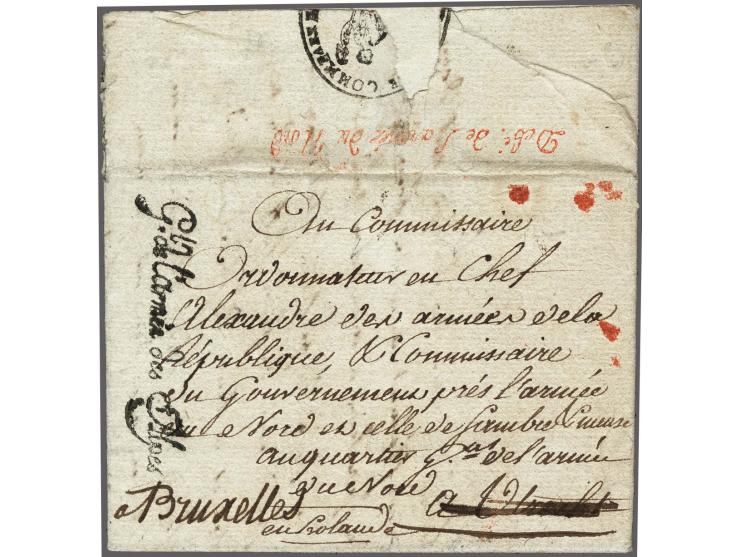 COMMISSAIRE
Deb. de L'armée du Nord
Gn. de l'armée des Alpes
Au Commissaire
Ordonnateur en Chef
Alexandre des armées de la
République, & Commissaire
du Gouvernement près l'armée
du Nord et celle de Sambre & meuse
au quartier g.al de l'armée
du Nord
a Utrecht
a Bruxelles
en holande